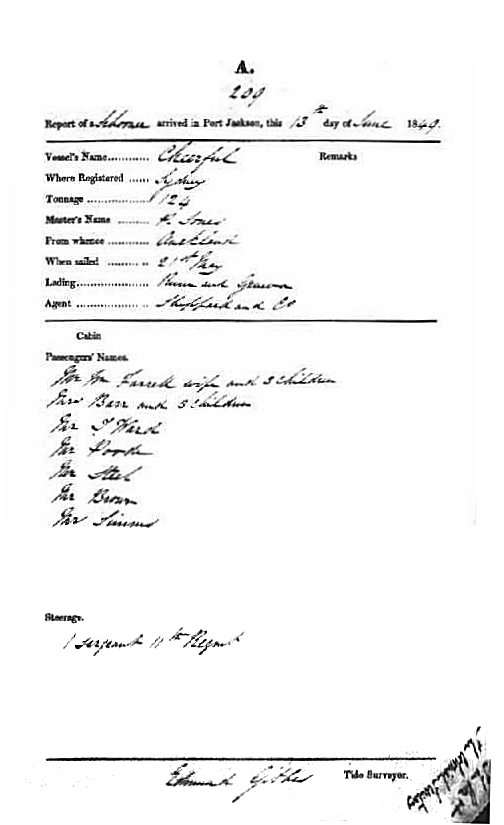 A.
209
Report of a Schooner arrived in Port Jackson, this 13th day of June 1849.
Vessel's Name............ Cheerful Remarks
Where Registered ...... Sydney
Tonnage .................. 124
Master's Name ......... P. Jones
From whence ............ Auckland
When sailed ............ 21st May
Lading..................... and
Agent ..................... Sheppard and Co
Cabin
Passengers' Names.
Mr Wm Farrell wife and 3 children
Mrs Barr and 3 children
Mr J Ward
Mr
Mr Steel
Mr Brown
Mr Simms
Steerage.
1 sergeant 11th Regmt
Edmund Gibbes Tide Surveyor.